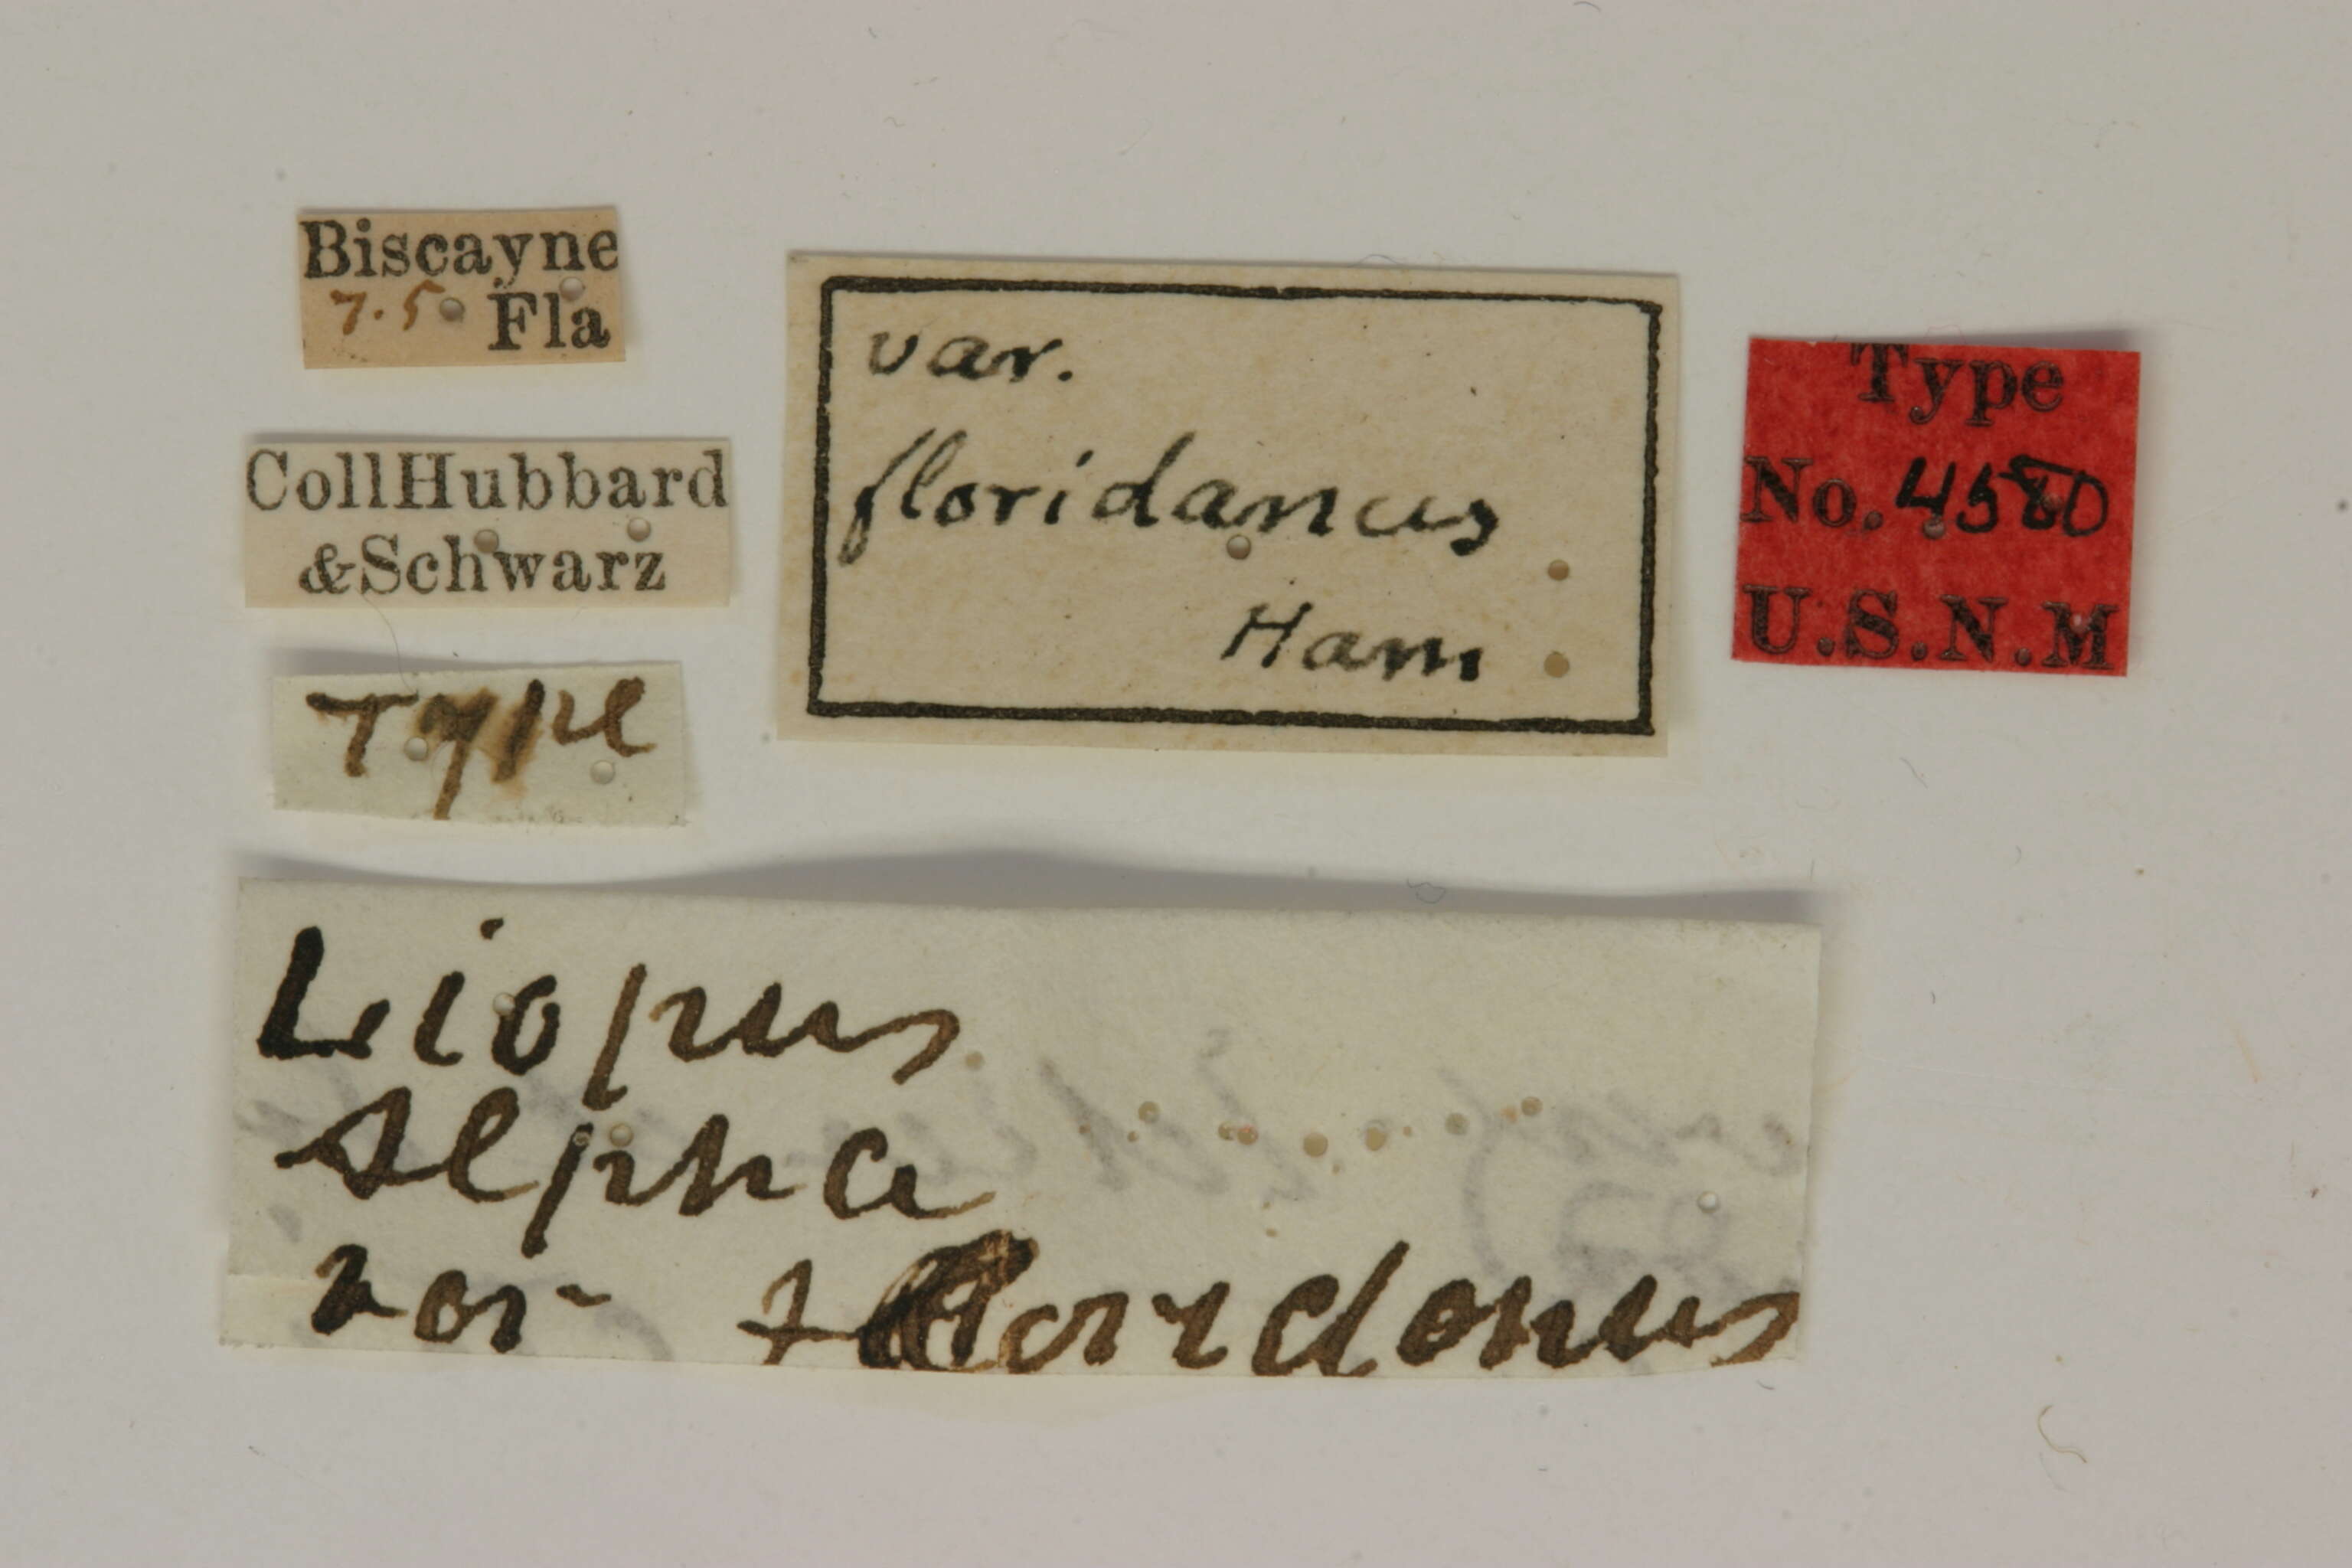 Biscayne
7.5 Fla
CollHubbard
&Schwarz
Type
var.
floridanus
Ham
Type
No. 4580
U.S.N.M
Liopus
Alpha
var floridanus